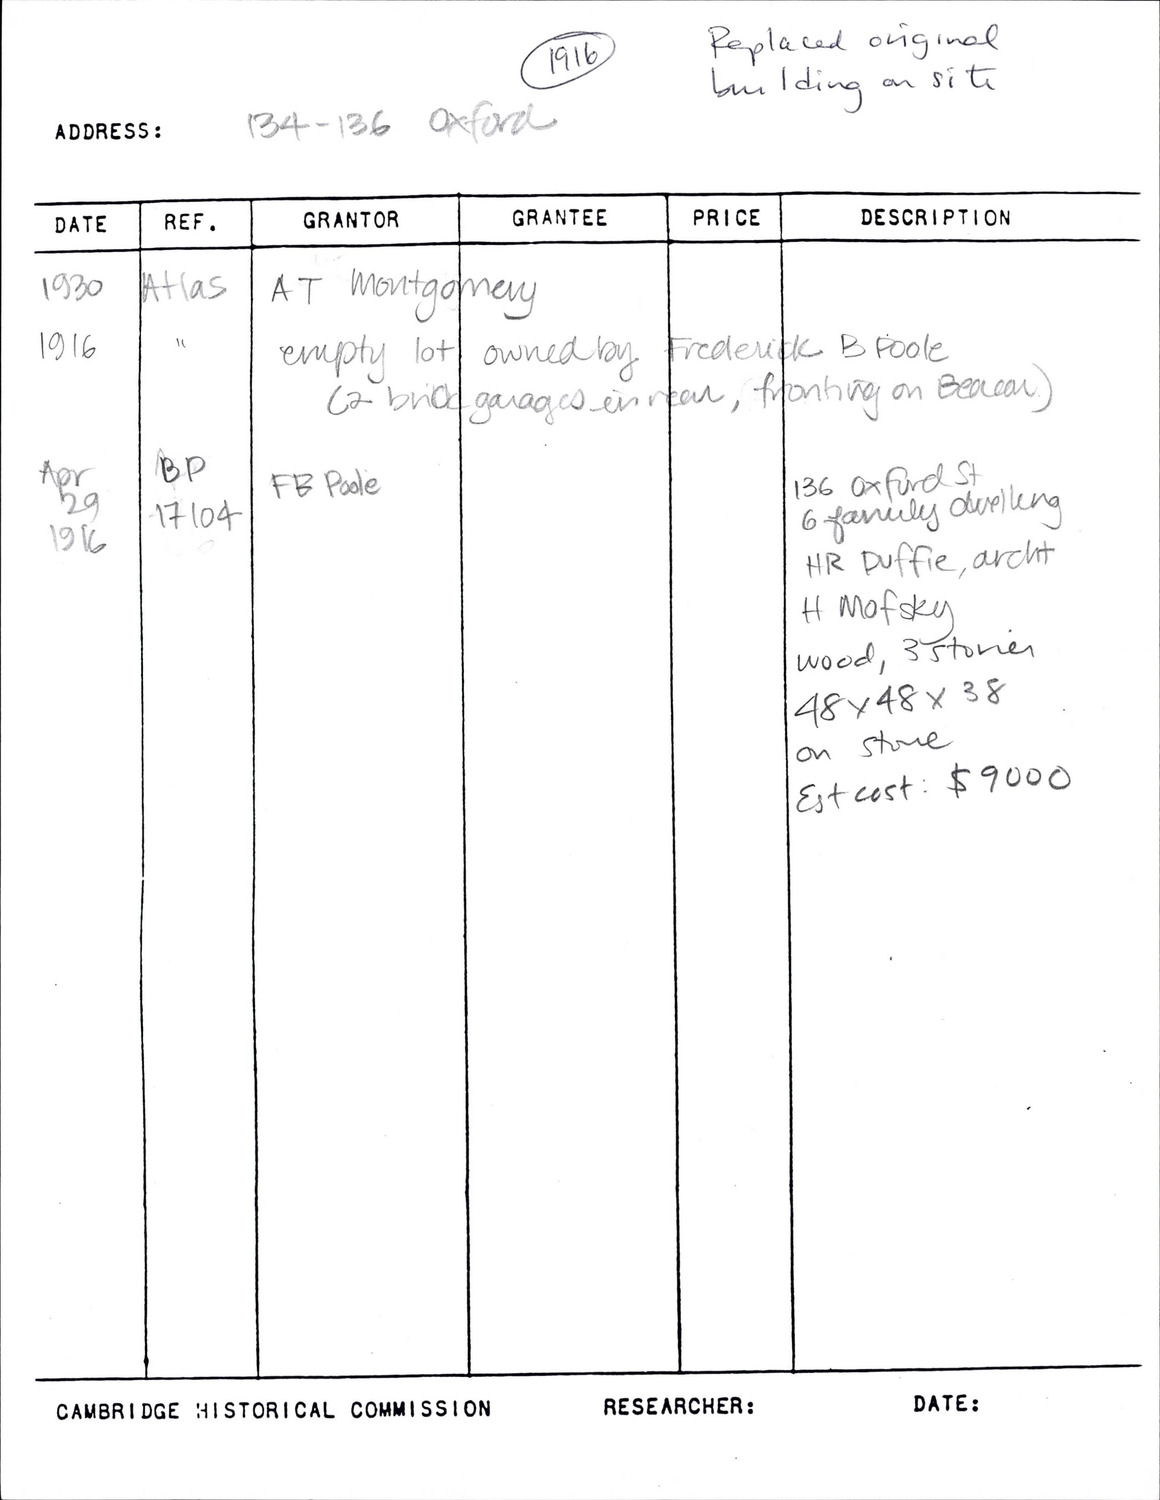 1916
Replaced original
building on site
ADDRESS: 134-136 Oxford
DATE REF. GRANTOR GRANTEE PRICE DESCRIPTION
1930 Atlas A T Montgomery
1916 " empty lot owned by Frederick B Poole
(2 brick garages in rear, fronting on Beacon)
Apr 29 1916 BP 17104 FB Poole 136 Oxford St
6 family dwelling
HR Duffie, archt
H Mofsky
wood, 3 stories
48x48x38
on stone
Est cost: $9000
CAMBRIDGE HISTORICAL COMMISSION RESEARCHER: DATE: